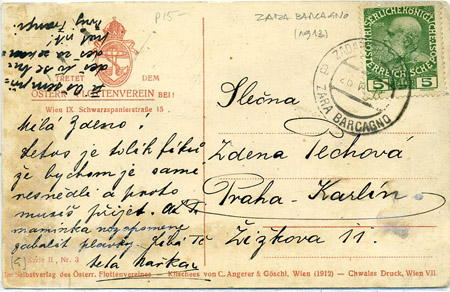 P 15-
ZARA BARCAGNO
(1913)
TRETET DEM
ÖSTERR. FLOTTENVEREIN BEI!
Wien IX. Schwarzspanierstraße 15
Milá Zdeno!
Letos je tolik fíků
že bychom je same
nesnědli a proto
musíš přijet. Ať Ti
maminka nezapomene
zabalit plavky. Líbá Tě
teta
Slečna
Zdena Pechová
Praha-Karlín.
Žižkova 11.
ZARA BARCAGNO
5 5
Serie II, Nr. 3
Im Selbstverlag des Österr. Flottenvereines - Klischees von C. Angerer & Göschl, Wien (1912) - Chwalas Druck, Wien VII.